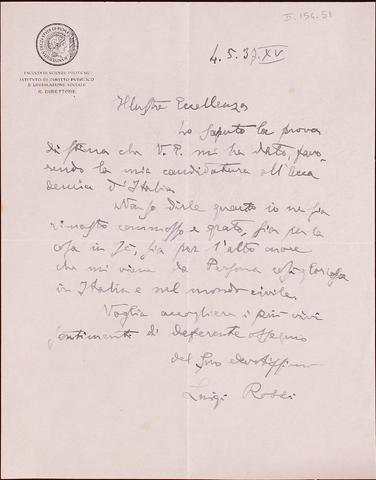 II. 154. 51
FACOLTÀ DI SCIENZE POLITICHE
ISTITUTO DI DIRITTO PUBBLICO
E LEGISLAZIONE SOCIALE
IL DIRETTORE
4. 5. 37. XV
Illustre Eccellenza
ho saputo la prova
di stima che V. E. mi ha dato, favo-
rendo la mia candidatura all'Acca
demia d'Italia
dirle quanto io ne sia
rimasto commosso e grato, sia per la
cosa in sé, sia per l'alto onore
che mi viene da Persona così gloriosa
in Italia e nel mondo civile.
Voglia accogliere i più vivi
sentimenti di deferente ossequio
del Suo devotissimo
Luigi Rossi